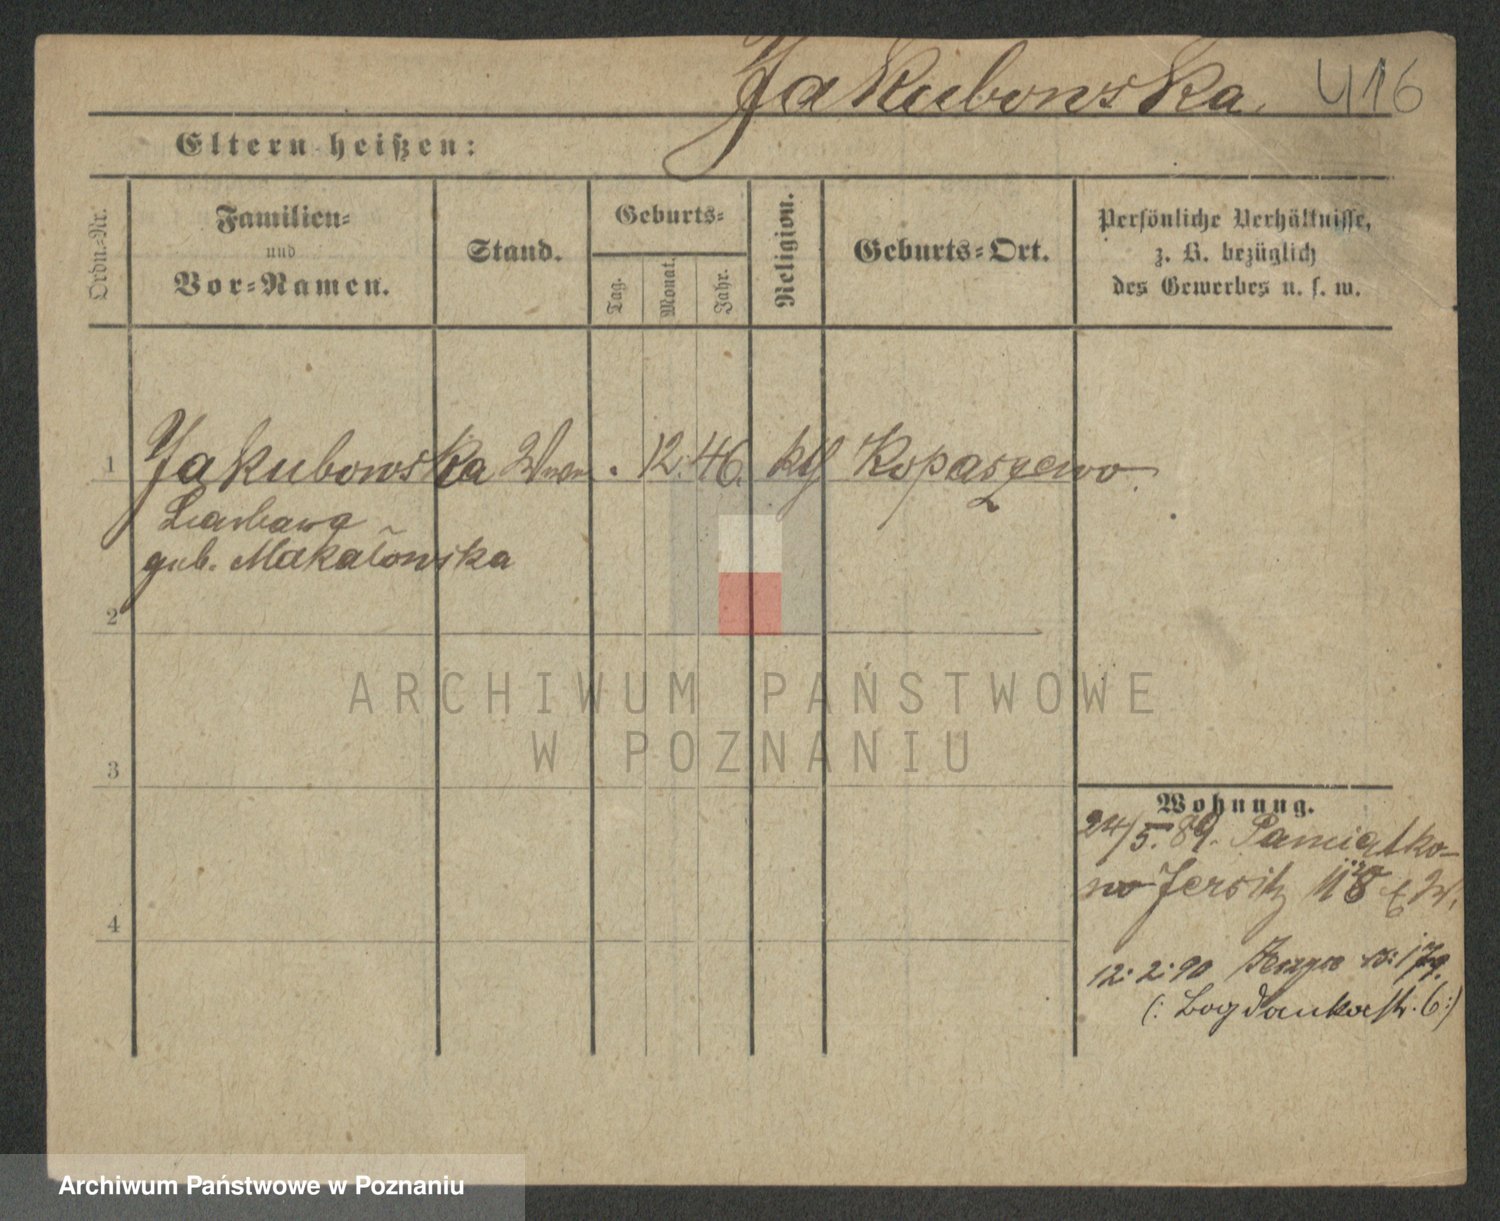 Jakubowska. 416
Eltern heißen:
Ordn.-Nr.
Familien-
und
Vor-Namen.
Stand.
Geburts-
Tag.
Monat.
Jahr.
Religion.
Geburts-Ort.
Persönliche Verhältnisse,
z. B. bezüglich
des Gewerbes u. s. w.
1 Jakubowska Wwe . 12. 46. kth Kopaszewo.
Barbara
geb. Makałowska
2
3
4
Wohnung.
24/5.89. Pamiątko-
wo Jersitz 118
12.2.90
(: Bogdankastr. 6 :)
ARCHIWUM PAŃSTWOWE
W POZNANIU
Archiwum Państwowe w Poznaniu